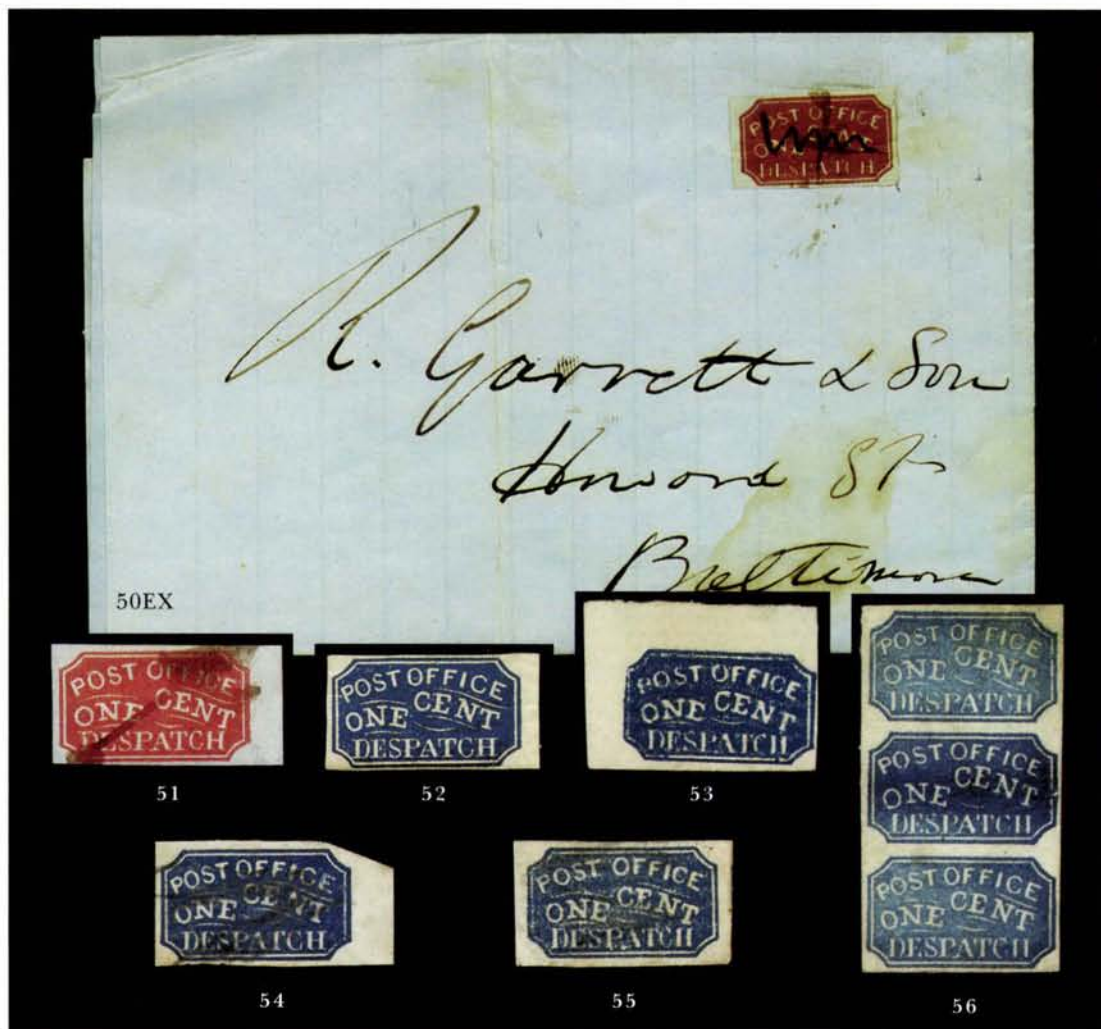 POST OFFICE
DESPATCH
R. Garrett & Son
Howard St
Baltimore
50EX
POST OFFICE
ONE CENT
DESPATCH
51
POST OFFICE
ONE CENT
DESPATCH
52
POST OFFICE
ONE CENT
DESPATCH
53
POST OFFICE
ONE CENT
DESPATCH
ONE CENT
DESPATCH
POST OFFICE
ONE CENT
DESPATCH
56
POST OFFICE
ONE CENT
DESPATCH
54
POST OFFICE
ONE CENT
DESPATCH
55